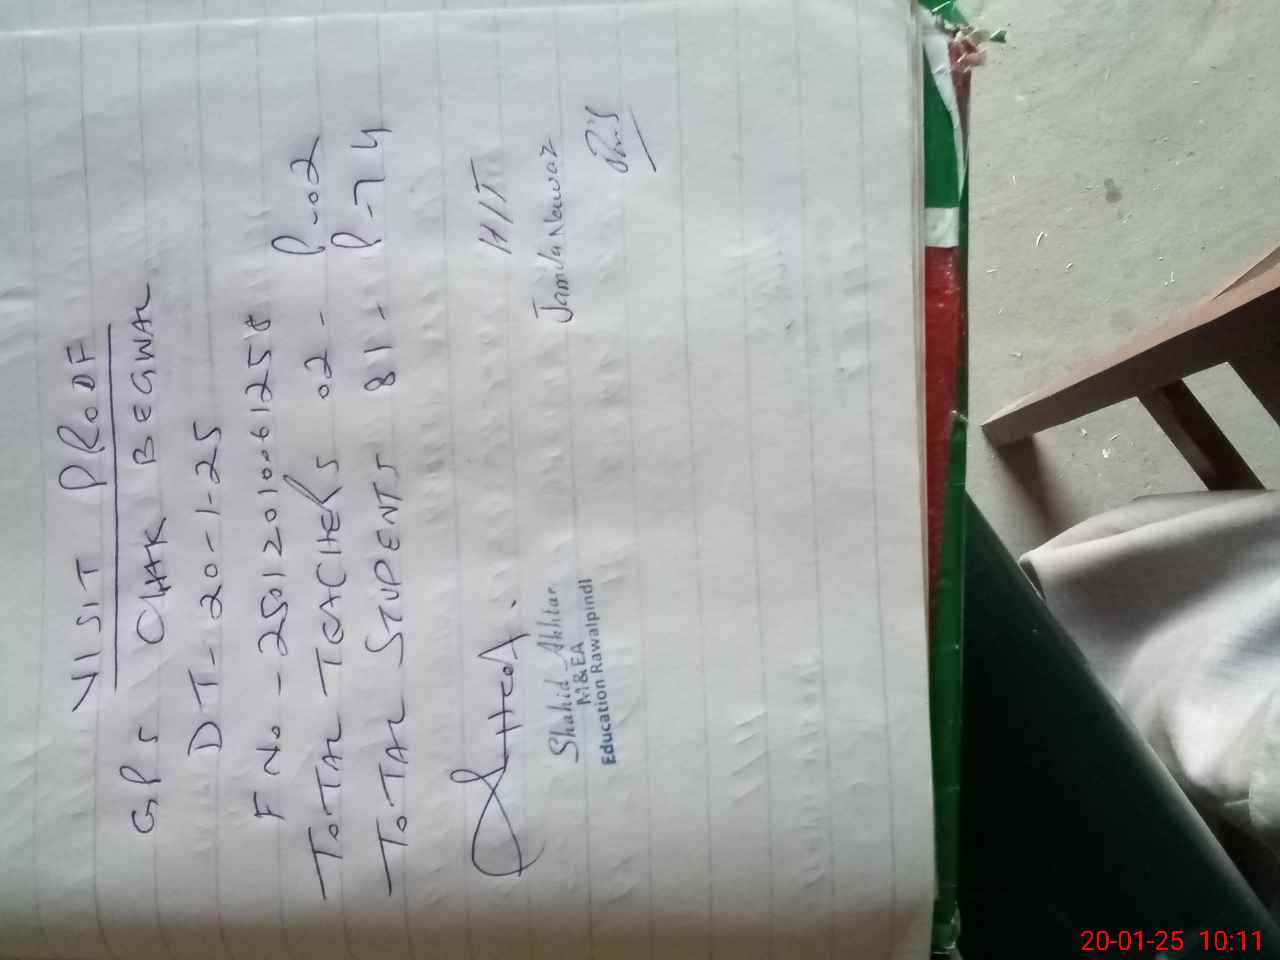 VISIT PROOF
GPS CHAK BEGWAL
DT- 20-1-25
F No - 25012010061258
TOTAL TEACHERS 02 - P-02
TOTAL STUDENTS 81 - P-74
H/T
Jamila Nawaz
Shahid Akhtar
M&EA
Education Rawalpindi
20-01-25 10:11